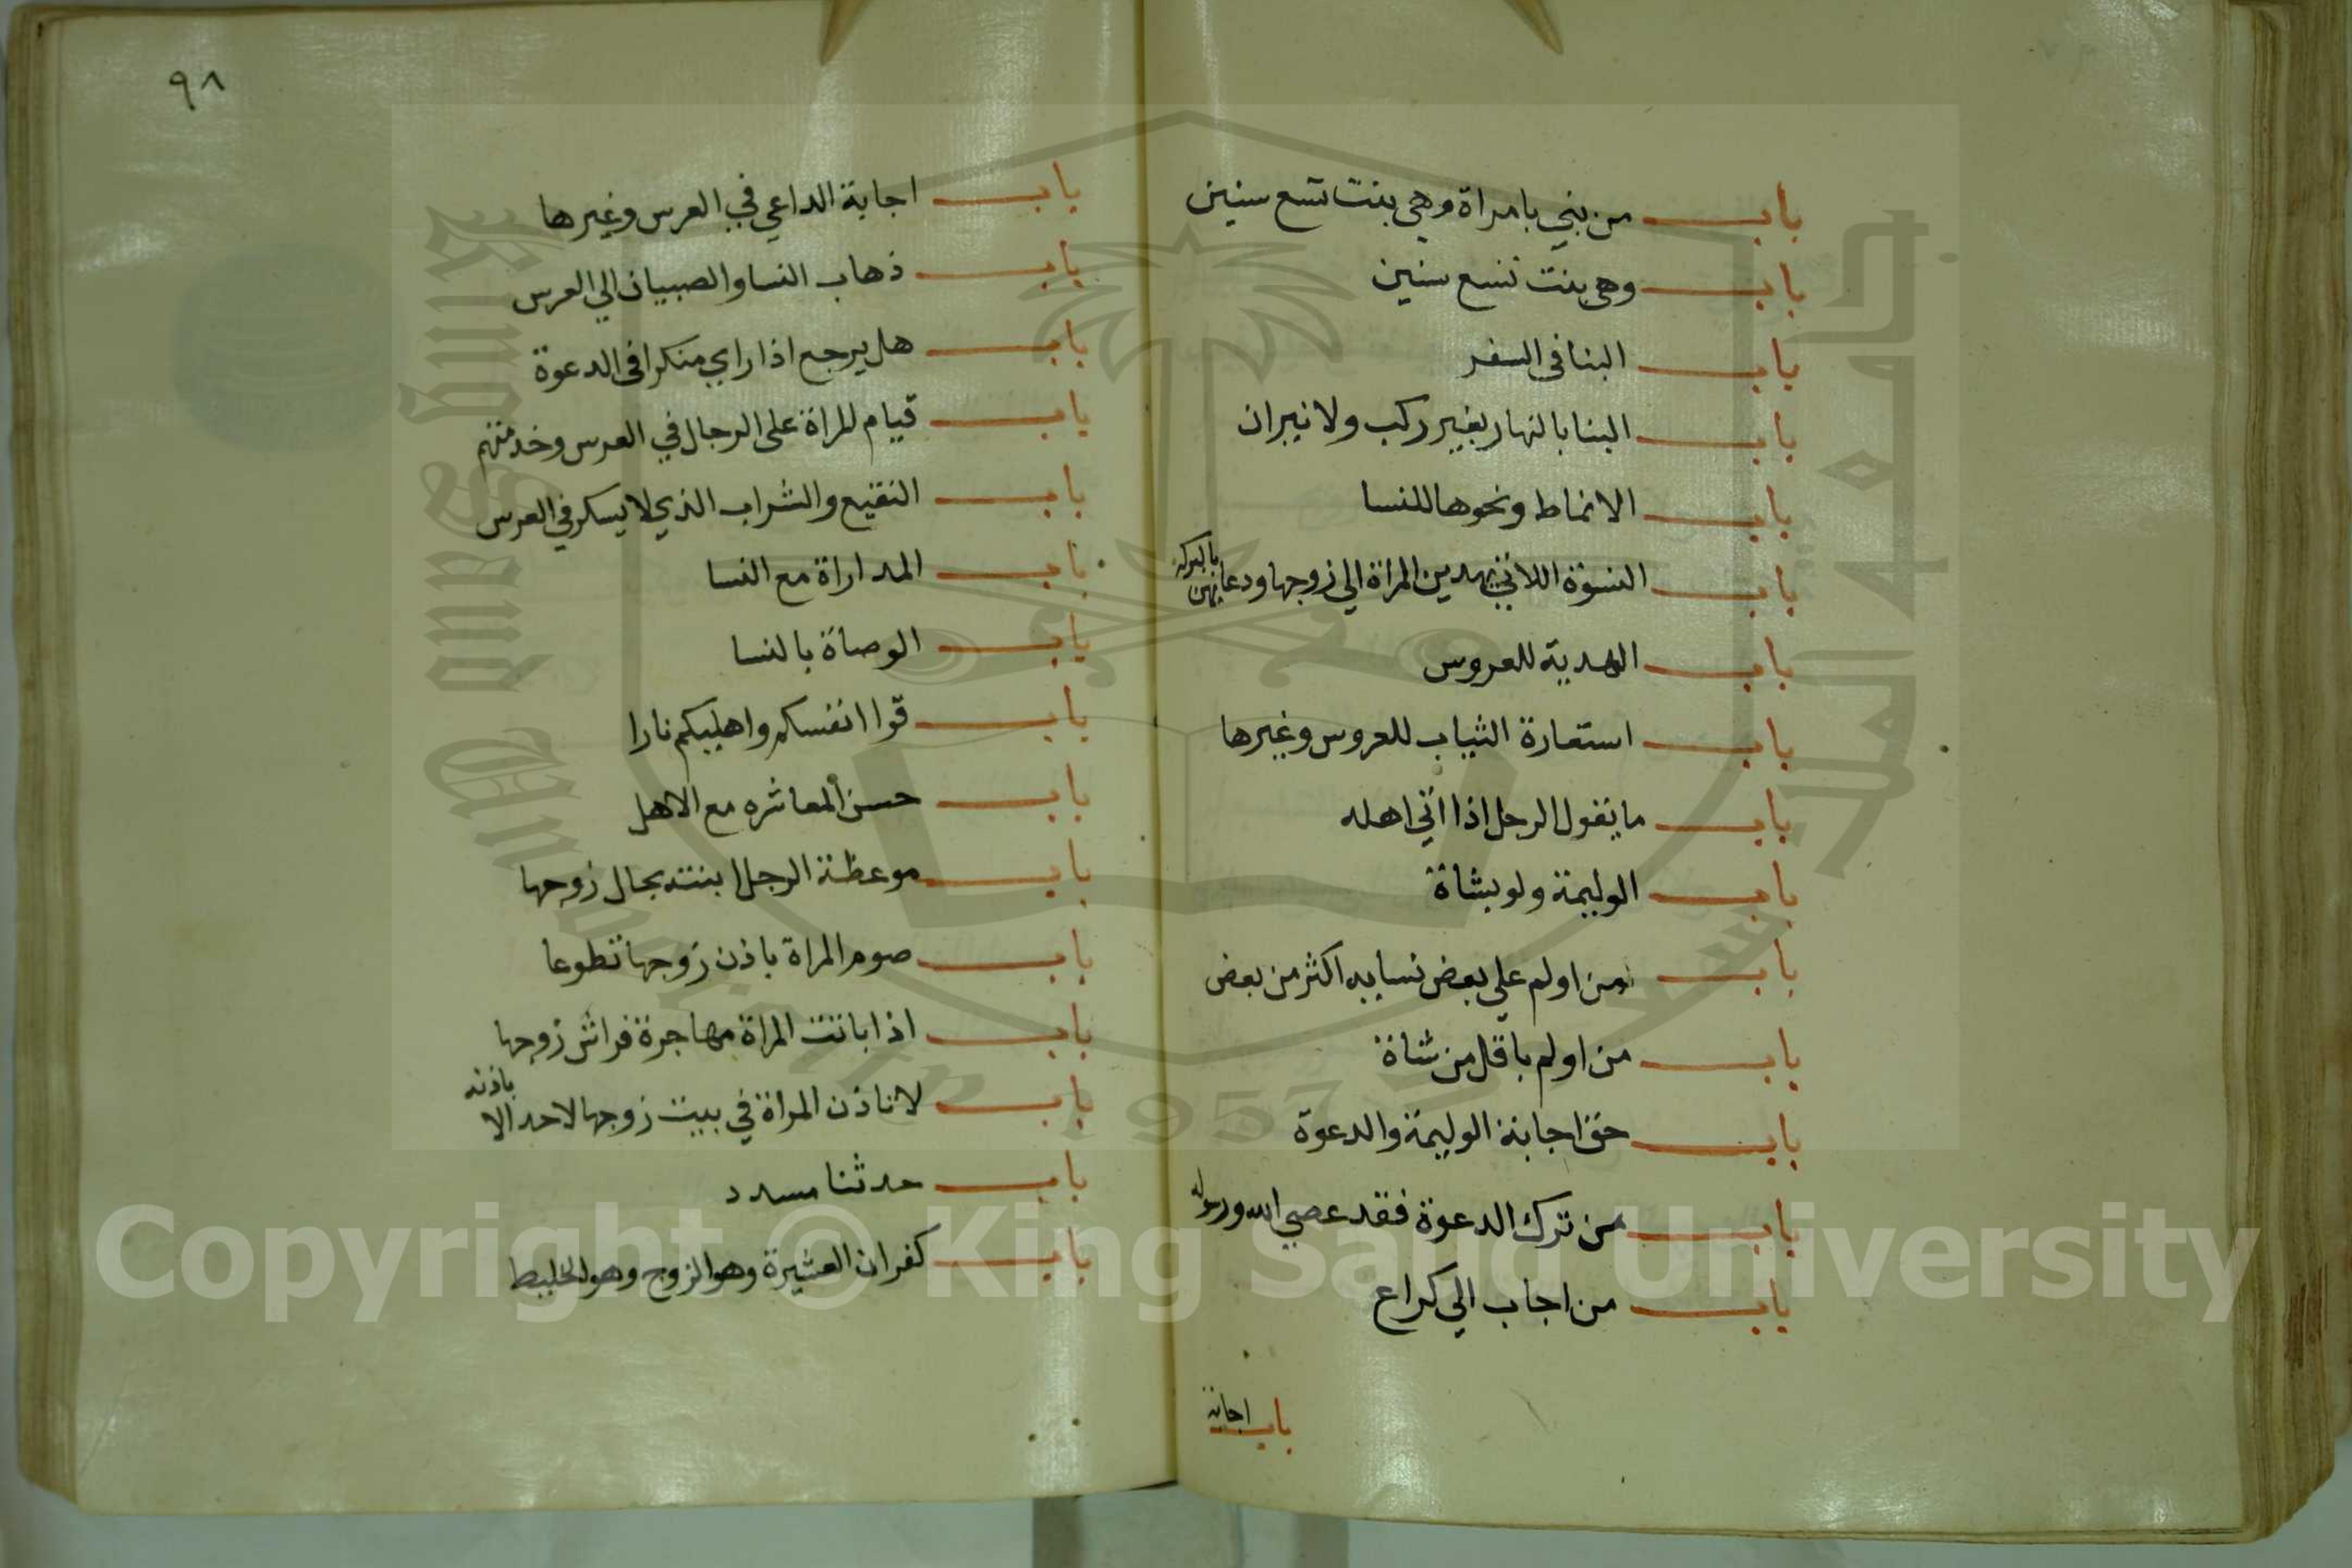 باب من بني بامراة وهي بنت تسع سنين
باب وهي بنت تسع سنين
باب البنا في السفر
باب البنا بالنهار بغير ركب ولا نيران
باب الانماط ونحوها للنسا
باب النسوة اللاتي يهدين المراة الي زوجها ودعايهن بالبركه
باب الهدية للعروس
باب استعارة الثياب للعروس وغيرها
باب ما يقول الرجل اذا اتي اهله
باب الوليمة ولو بشاة
باب من اولم علي بعض نسايه اكثر من بعض
باب من اولم باقل من شاة
باب حق اجابة الوليمة والدعوة
باب من ترك الدعوة فقد عصي الله ورسوله
باب من اجاب الي كراع
باب اجابة
٩٨
باب اجابة الداعي في العرس وغيرها
باب ذهاب النسا والصبيان الي العرس
باب هل يرجع اذا راي منكرا في الدعوة
باب قيام المراة على الرجال في العرس وخدمتهم
باب النقيع والشراب الذي لا يسكر في العرس
باب المداراة مع النسا
باب الوصاة بالنسا
باب قوا انفسكم واهليكم نارا
باب حسن المعاشره مع الاهل
باب موعظة الرجل ابنته بحال زوجها
باب صوم المراة باذن زوجها تطوعا
باب اذا باتت المراة مهاجرة فراش زوجها
باب لا تاذن المراة في بيت زوجها لاحد الا باذنه
باب حدثنا مسدد
باب كفران العشيرة وهو الزوج وهو الخليط
Copyright © King Saud University
King Saud University
1957